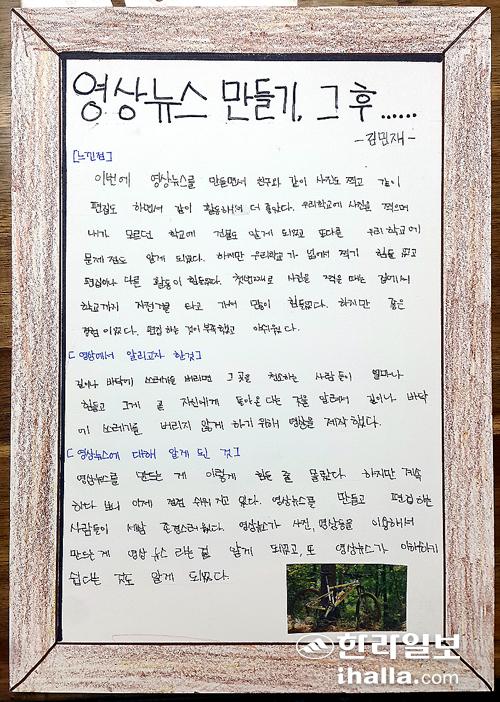 영상뉴스 만들기, 그 후......
-김민재-
[느낀점]
이번에 영상뉴스를 만들면서 친구와 같이 사진도 찍고 같이
편집도 하면서 같이 활동해서 더 좋았다. 우리학교에 사진을 찍으며
내가 모르던 학교에 건물도 알게 되었고 또다른 우리 학교에
문제점도 알게 되었다. 하지만 우리학교가 넓어서 찍기 힘들었고
편집이나 다른 활동이 힘들었다. 첫번째로 사진을 찍을 때는 집에서
학교까지 자전거를 타고 가서 많이 힘들었다. 하지만 좋은
경험이었다. 편집하는 것이 부족했고 아쉬웠다.
[영상에서 알리고자 한것]
길이나 바닥에 쓰레기를 버리면 그 곳을 청소하는 사람들이 얼마나
힘들고 그게 곧 자신에게 돌아온다는 것을 알려서 길이나 바닥
에 쓰레기를 버리지 않게 하기 위해 영상을 제작했다.
[영상뉴스에 대해 알게 된 것]
영상뉴스를 만드는 게 이렇게 힘든 줄 몰랐다. 하지만 계속
하다 보니 이제 점점 쉬워 지고 있다. 영상뉴스를 만들고 편집하는
사람들이 세삼 존경스러웠다. 영상뉴스가 사진, 영상등을 이용해서
만드는 게 영상 뉴스 라는걸 알게 되었고, 또 영상뉴스가 이해하기
쉽다는 것도 알게 되었다.
한라일보
ihalla.com